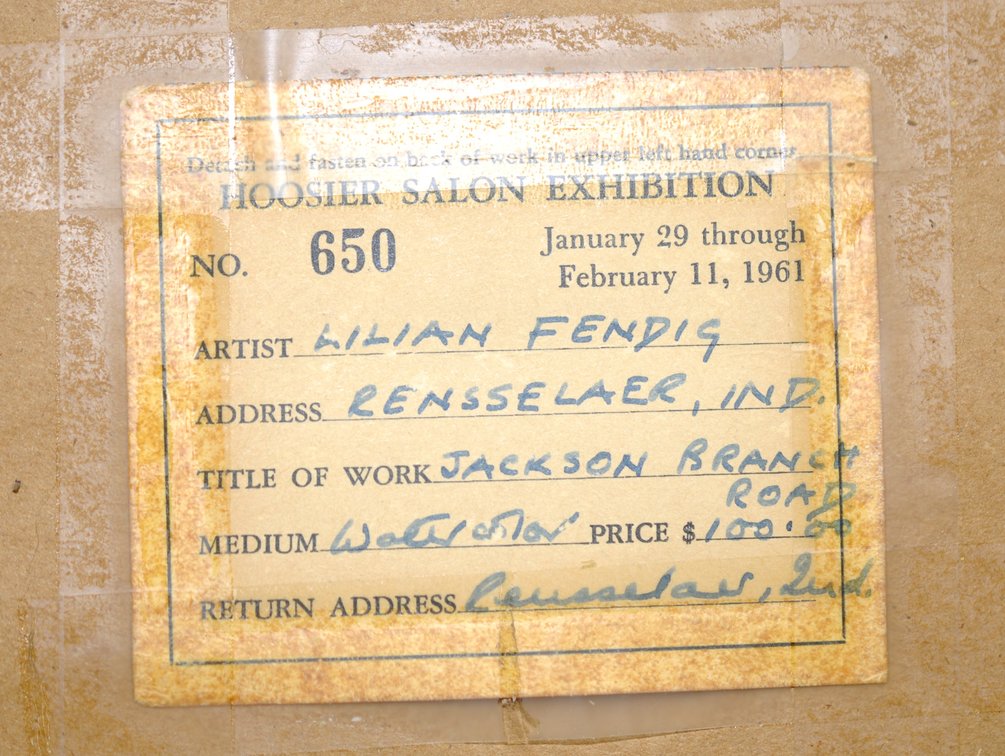 Detach and fasten on back of work in upper left hand corner
HOOSIER SALON EXHIBITION
NO. 650
January 29 through
February 11, 1961
ARTIST LILIAN FENDIG
ADDRESS RENSSELAER, IND.
TITLE OF WORK JACKSON BRANCH
ROAD
MEDIUM Watercolor PRICE $ 100.00
RETURN ADDRESS Rensselaer, Ind.